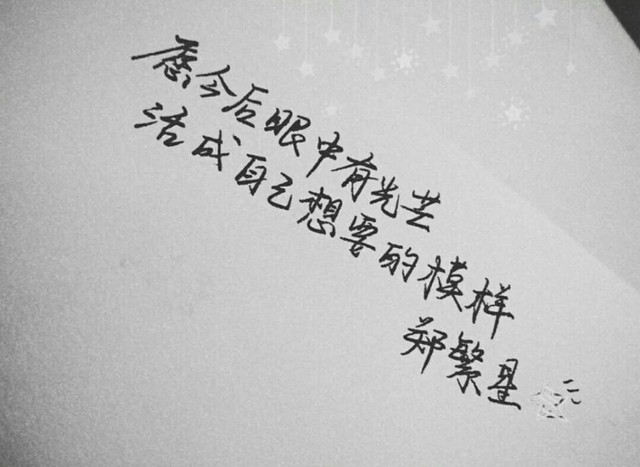 愿今后眼中有光芒
活成自己想要的模样
郑繁星